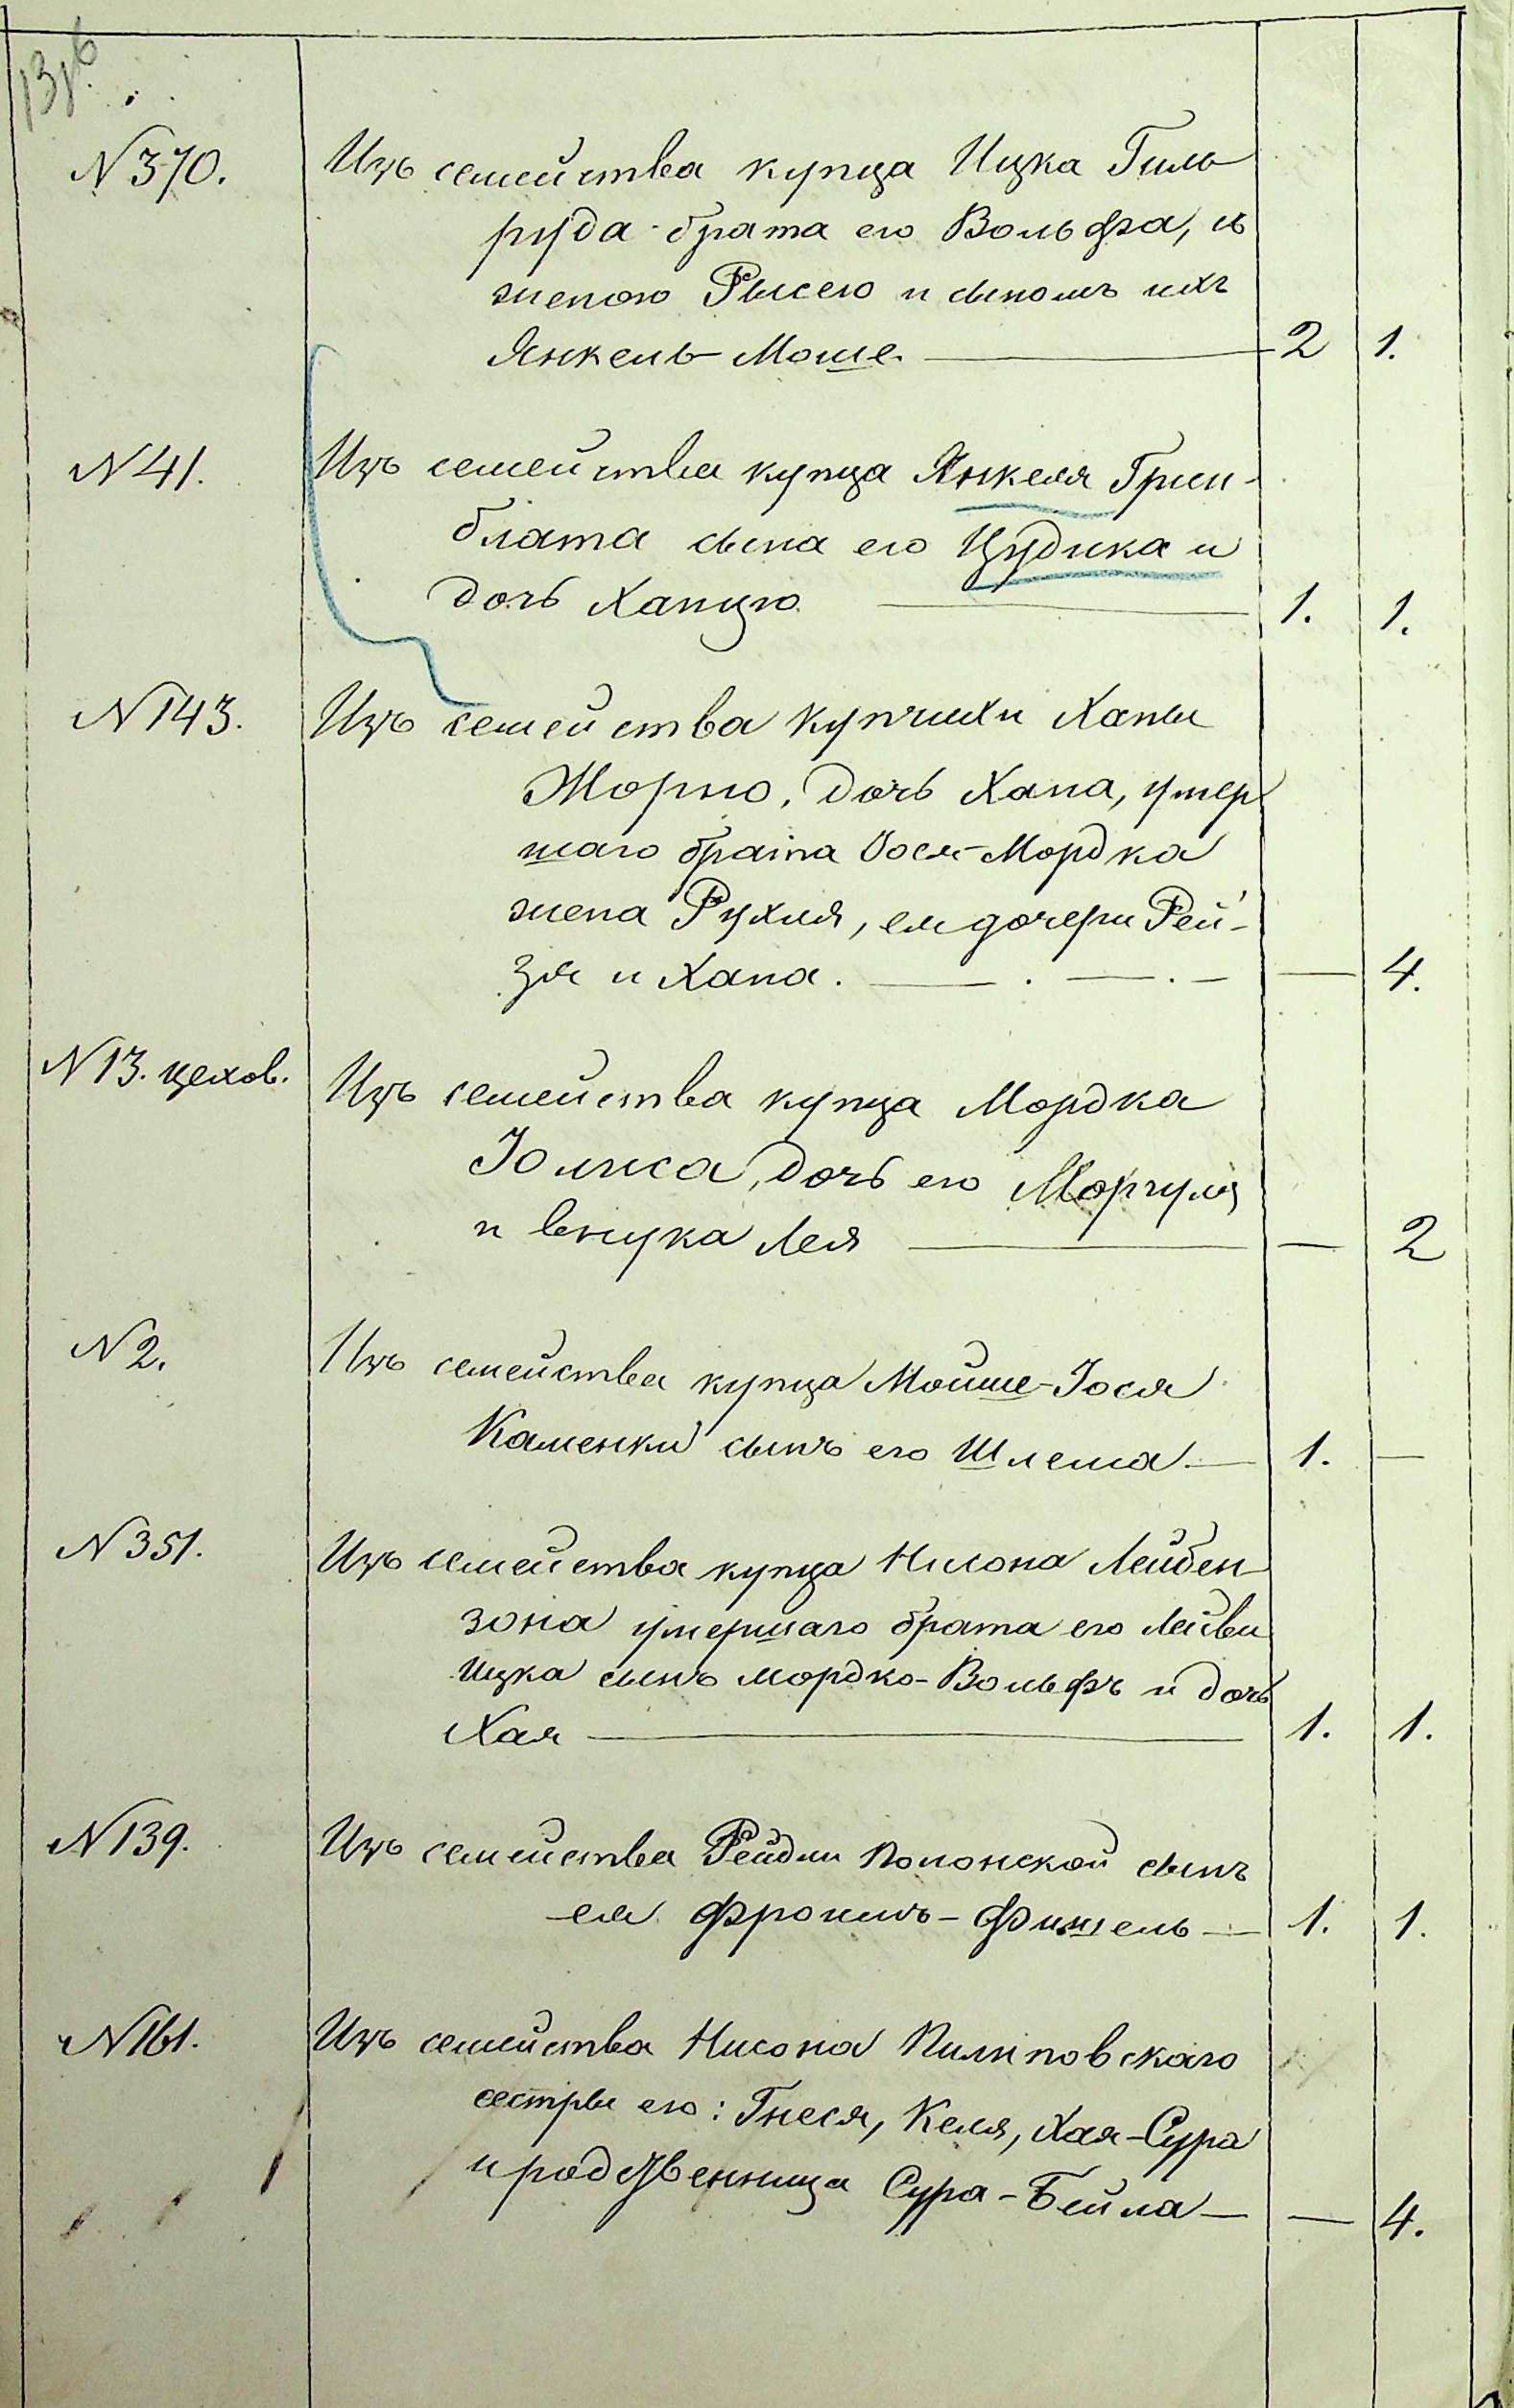 N 370.
Изъ семейства купца Ицка Гиль
руда брата его Вольфа, съ
женою Рысею и сыномъ ихъ
Янкель-Моше. — 2 1.
N 41.
Изъ семейства купца Янкеля Грин-
блата сына его Цудика и
дочь Ханцю. — 1. 1.
N 143.
Изъ семейства купчихи Ханы
Жорно, дочь Хана, умер
шаго брата Іося-Мордка
жена Рухля, ея дочери Рей-
зя и Хана. — — 4.
N 13. цехов.
Изъ семейства купца Мордка
его
и внука Лея — — 2
N 2.
Изъ семейства купца Мойше-Іося
Каменки сынъ его Шлема — 1. —
N 351.
Изъ семейства купца Нисона Лейбен
зона умершаго брата его Лейви
Ицка сынъ Мордко-Вольфъ и дочь
Хая — 1. 1.
N 139.
Изъ семейства Рейдли Полонской сынъ
ея Фроимъ-Фишель — 1. 1.
N 161.
Изъ семейства Нисона Пилиповскаго
сестры его: Гнеся, Келя, Хая-Сура
и родственница Сура-Бейла — — 4.